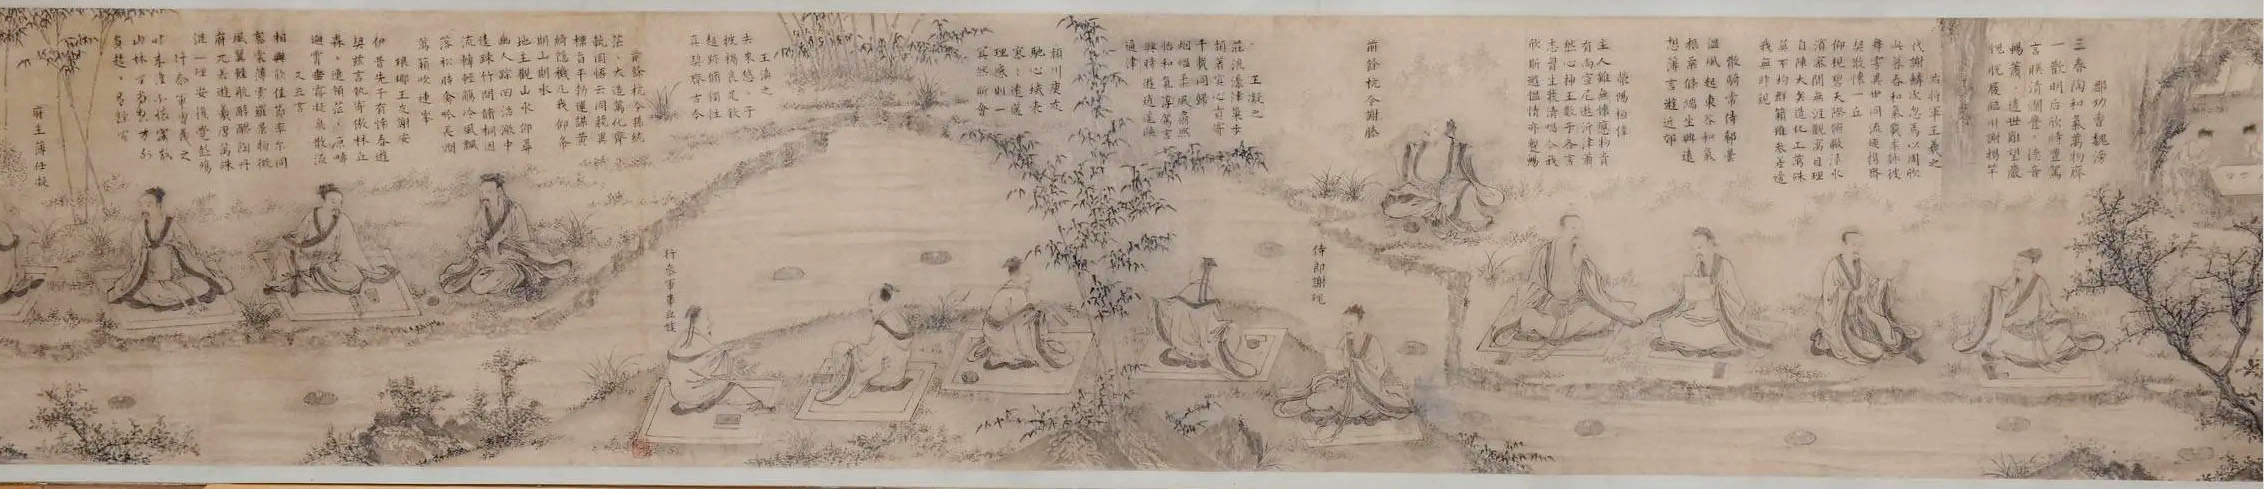 郡功曹魏滂
三春陶和氣萬物齊
一歡明后欣時豐駕
言暎清瀾亹〻德音
暢蕭〻遺世難望巖
愧脫屣臨川謝揭竿
右將軍王羲之
代謝鱗次忽焉以周欣
此暮春和氣載柔詠彼
舞雩異世同流迺携齊
契散懷一丘
仰視碧天際俯瞰淥水
濱寥閴無涯觀寓目理
自陳大矣造化工萬殊
莫不均群籟雖參差適
我無非親
散騎常侍郗曇
温風起東谷和氣
振柔條端坐興遠
想薄言遊近郊
滎陽桓偉
主人雖無懷應物貴
有尚宣尼遨沂津蕭
然心神王數子各言
志曾生發清唱今我
欣斯遊慍情亦暫暢
前餘杭令謝勝
侍郎謝瑰
王凝之
莊浪濠津巢步
潁湄冥心真寄
千載同歸
烟熅柔風扇熙
怡和氣淳駕言
興時遊逍遙暎
通津
潁川庾友
馳心域表
寥〻遠邁
理感則一
冥然斯會
王涣之
去来悠〻子
披褐良足欽
超跡脩獨往
真契齊古今
行參軍事丘髦
前餘杭令孫統
茫〻大造萬化齊
軌罔悟玄同競異
標旨平勃運謀黃
綺隱機凡我仰希
期山期水
地主觀山水仰尋
幽人踪回沼激中
逵踈竹間脩桐因
流轉輕觴冷風飄
落松時禽吟長澗
萬籟吹連峯
琅瑯王友謝安
伊昔先子有懷春遊
契茲言執寄傲林丘
森〻連嶺茫〻原疇
迥霄垂霧凝泉散流
又五言
相與欣佳節率尔同
褰裳薄雲羅景物微
風翼輕航醇醪陶丹
府兀若遊羲唐萬殊
混一理安復覺彭殤
行參軍曹茂之
時来誰不懷寄散
山林間尚想方外
賓迢〻有餘閒
府主簿任凝